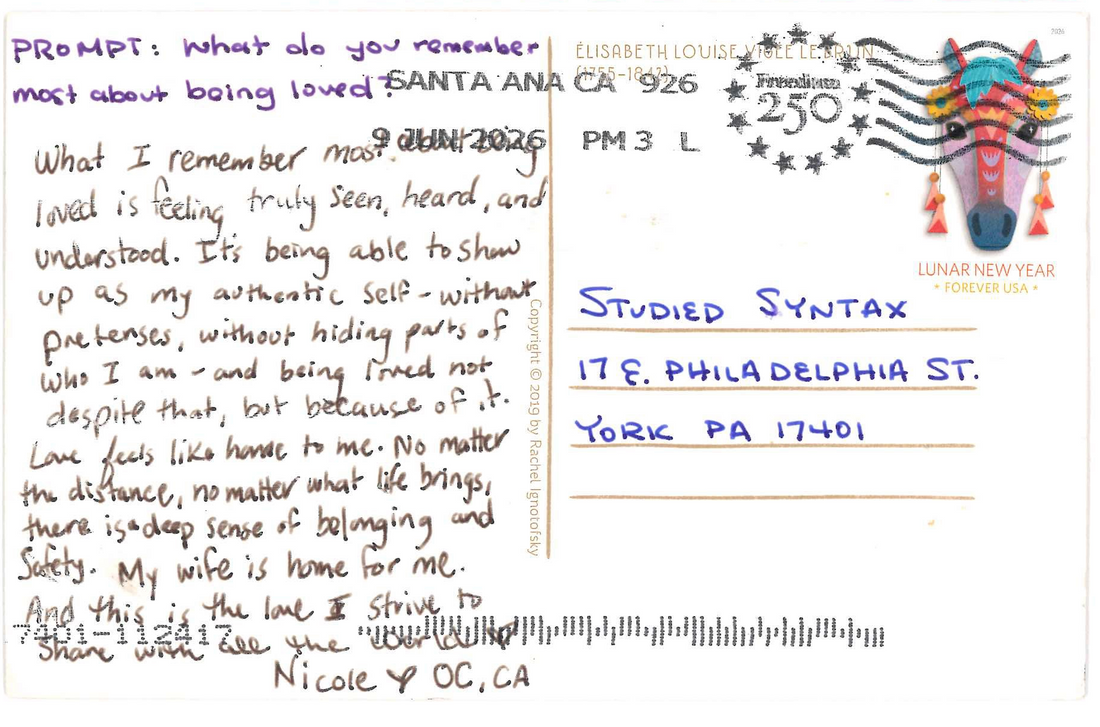 PROMPT: What do you remember
most about being loved?
What I remember most about being
loved is feeling truly seen, heard, and
understood. It's being able to show
up as my authentic self - without
pretenses, without hiding parts of
who I am - and being loved not
despite that, but because of it.
Love feels like home to me. No matter
the distance, no matter what life brings,
there is a deep sense of belonging and
safety. My wife is home for me.
And this is the love I strive to
share with all the world
Nicole ♥ OC, CA
ÉLISABETH LOUISE VIGÉE LE BRUN
(1755-1842)
SANTA ANA CA 926
9 JUN 2026 PM 3 L
Freedom
250
2026
LUNAR NEW YEAR
* FOREVER USA *
Copyright © 2019 by Rachel Ignotofsky
STUDIED SYNTAX
17 E. PHILADELPHIA ST.
YORK PA 17401
7401-112417